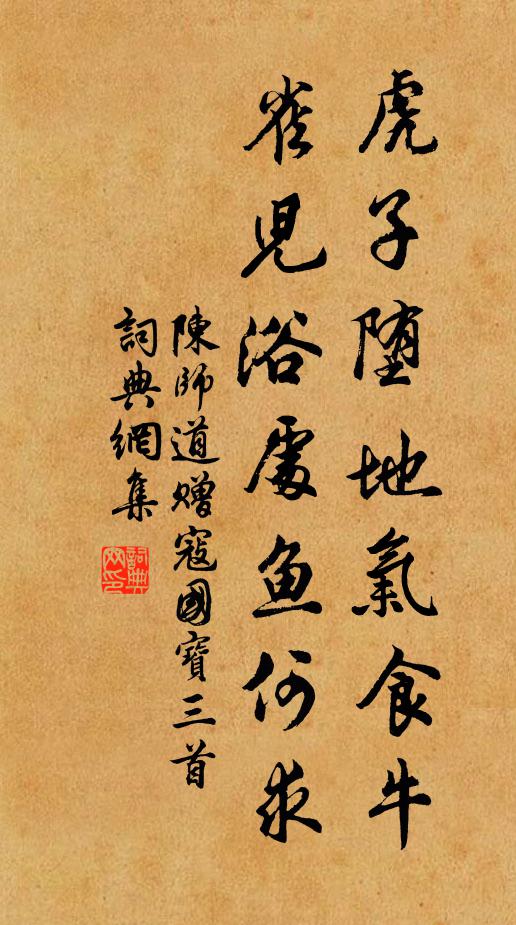 虎子堕地氣食牛
雀児浴處魚何求
陳師道贈寇國寶三首
詞典網集
詞典網印